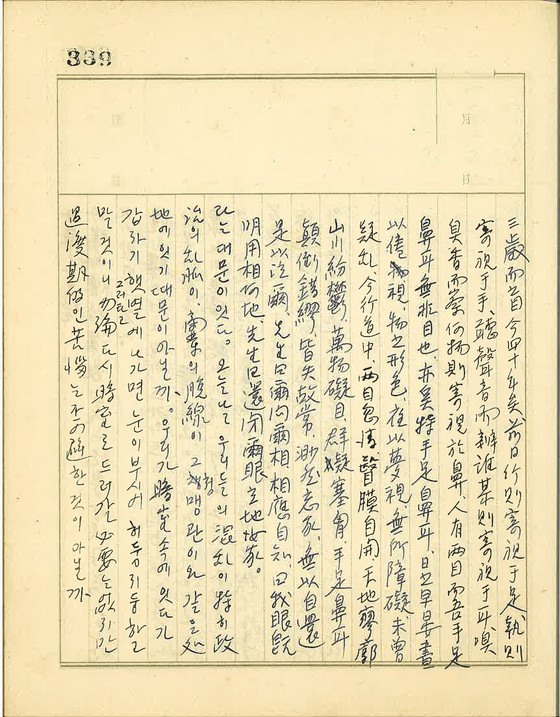 339
日
日
三歲而盲今四十年矣前日行則寄視于足執則
寄視于手聽聲音而辨誰某則寄視于耳嗅
臭香而察何物則寄視於鼻人有兩目而吾手足
鼻耳無非目也亦奚特手足鼻耳日之早晏晝
以倦視物之形色在以夢視無所障礙未曾
疑乱今行道中兩目忽淸瞖膜自開天地寥郭
山川紛鬱萬物礙目群疑塞胷手足鼻耳
顚倒錯繆皆失故常渺然忘家無以自還
是以泣爾先生曰爾問爾相相應自知曰我眼旣
明用相何地先生曰還閉爾眼立地汝家。
라는 대문이 있다. 오늘날 우리들의 混乱이 特히 政
治의 乱脈이, 商業의 脫線이 그 盲관이와 같은 處
地에 있기 때문이 아닐까. 우리가 暗室 속에 있다가
갑자기 햇볕에 나가면 눈이 부시어 허둥지둥할
그러므로
말 것이니 勿論 다시 暗室로 드러갈 必要는 없지만
過渡期的인 苦惱는 不可避한 것이 아닐까